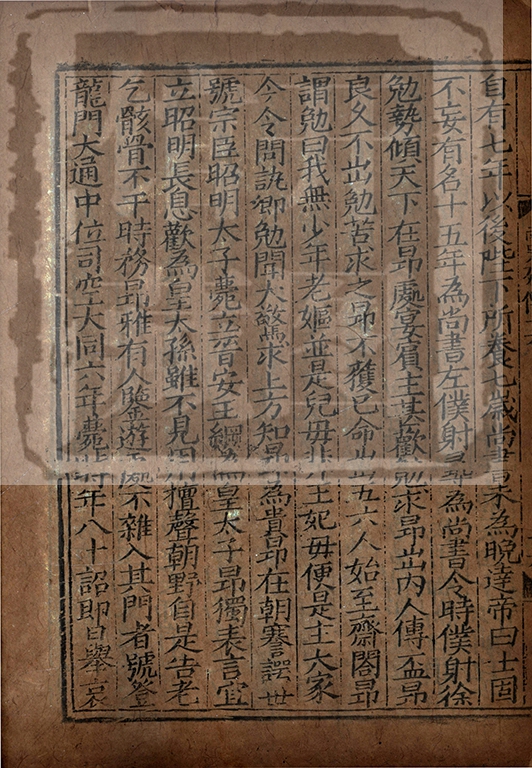 自有七年以後陛下所養七歲尚書未為晚達帝曰士固
不妄有名十五年為尚書左僕射尋為尚書令時僕射徐
勉勢傾天下在昂處宴賓主甚歡勉求昂出內人傳盃昂
良久不出勉苦求之昂不獲已命出五六人始至齋閤昂
謂勉曰我無少年老嫗並是兒母非王妃母便是主大家
今令問訊卿勉聞大驚求止方知昂為貴昂在朝謇諤世
號宗臣昭明太子薨立晉安王綱為皇太子昂獨表言宜
立昭明長息歡為皇太孫雖不見用擅聲朝野自是告老
乞骸骨不干時務昂雅有人鑒遊處不雜入其門者號登
龍門大通中位司空大同六年薨時年八十詔即日舉哀